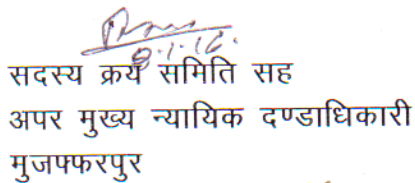 8.1.16.
सदस्य क्रय समिति सह
अपर मुख्य न्यायिक दण्डाधिकारी
मुजफ्फरपुर